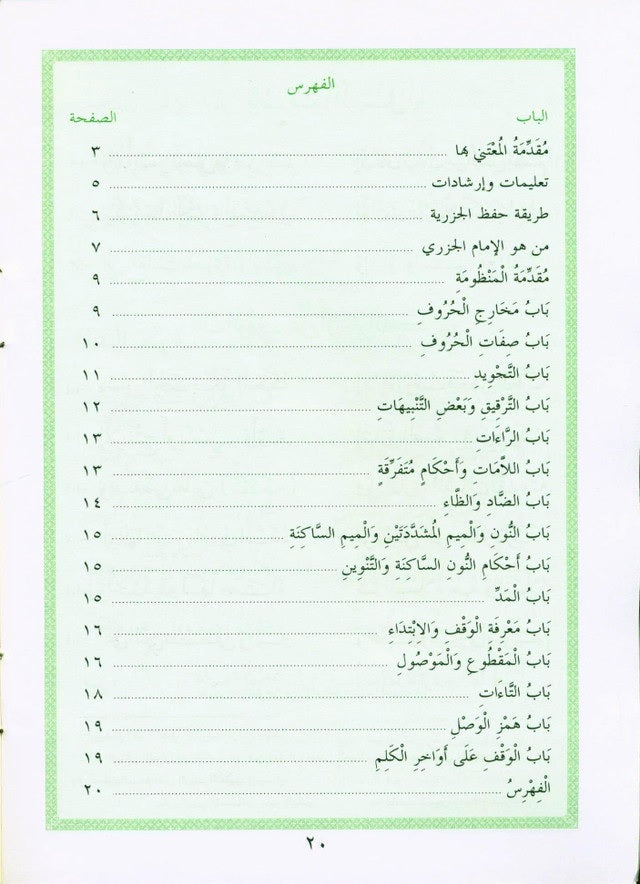 الفهرس
الباب الصفحة
مُقَدِّمَةُ الْمُعْتَنِي بِهَا ٣
تعليمات وإرشادات ٥
طريقة حفظ الجزرية ٦
من هو الإمام الجزري ٧
مُقَدِّمَةُ الْمَنْظُومَةِ ٩
بَابُ مَخَارِجِ الْحُرُوفِ ٩
بَابُ صِفَاتِ الْحُرُوفِ ١٠
بَابُ التَّجْوِيدِ ١١
بَابُ التَّرْقِيقِ وَبَعْضِ التَّنْبِيهَاتِ ١٢
بَابُ الرَّاءَاتِ ١٣
بَابُ اللَّامَاتِ وَأَحْكَامٍ مُتَفَرِّقَةٍ ١٣
بَابُ الضَّادِ وَالظَّاءِ ١٤
بَابُ النُّونِ وَالْمِيمِ الْمُشَدَّدَتَيْنِ وَالْمِيمِ السَّاكِنَةِ ١٥
بَابُ أَحْكَامِ النُّونِ السَّاكِنَةِ وَالتَّنْوِينِ ١٥
بَابُ الْمَدِّ ١٥
بَابُ مَعْرِفَةِ الْوَقْفِ وَالِابْتِدَاءِ ١٦
بَابُ الْمَقْطُوعِ وَالْمَوْصُولِ ١٦
بَابُ التَّاءَاتِ ١٨
بَابُ هَمْزِ الْوَصْلِ ١٩
بَابُ الْوَقْفِ عَلَى أَوَاخِرِ الْكَلِمِ ١٩
الْفِهْرِسُ ٢٠
٢٠